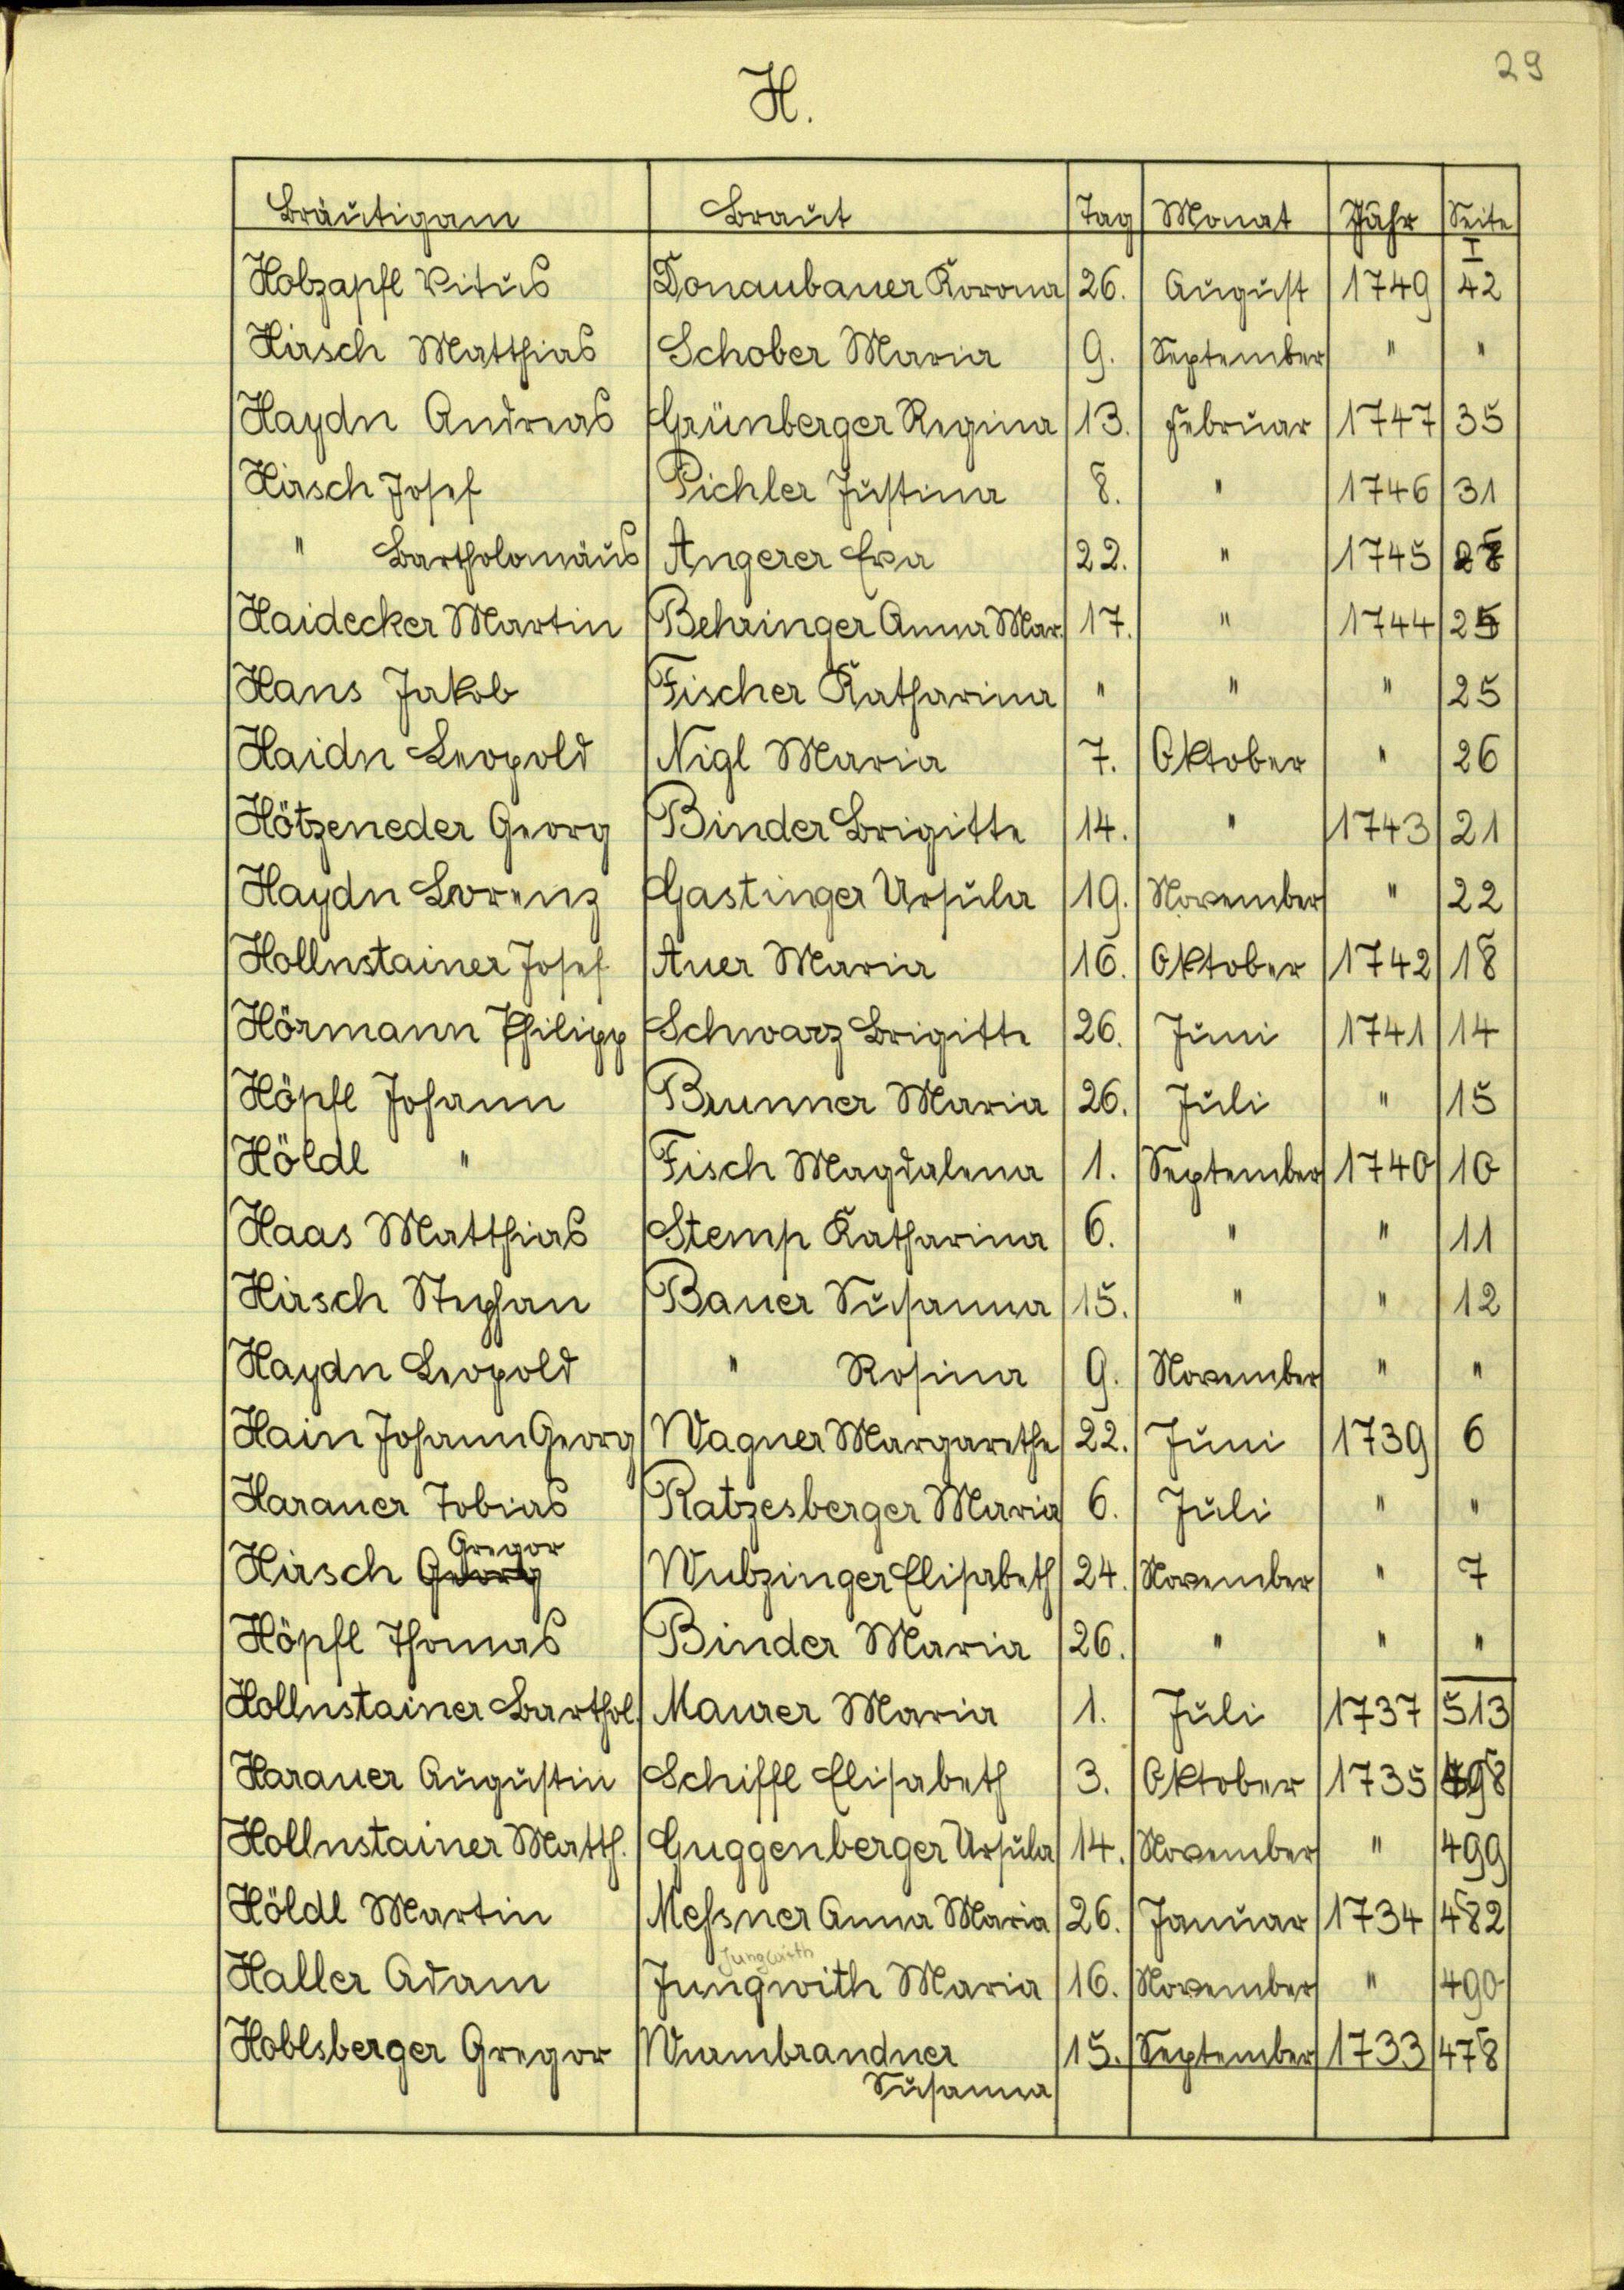 29
H.
Bräutigam Braut Tag Monat Jahr Seite
I
Holzapfl Vitus Donaubauer Korona 26. August 1749 42
Hirsch Matthias Schober Maria 9. September " "
Haydn Andreas Grünberger Regina 13. Februar 1747 35
Hirsch Josef Pichler Justina 8. " 1746 31
" Bartholomäus Angerer Eva 22. " 1745
Haidecker Martin Behringer Anna Mar. 17. " 1744 25
Hans Jakob Fischer Katharina " " " 25
Haidn Leopold Nigl Maria 7. Oktober " 26
Hötzeneder Georg Binder Brigitte 14. " 1743 21
Haydn Lorenz Gastinger Ursula 19. November " 22
Hollnstainer Josef Auer Maria 16. Oktober 1742 18
Hörmann Philipp Schwarz Brigitte 26. Juni 1741 14
Höpfl Johann Brunner Maria 26. Juli " 15
Höldl " Fisch Magdalena 1. September 1740 10
Haas Matthias Stemp Katharina 6. " " 11
Hirsch Stephan Bauer Susanna 15. " " 12
Haydn Leopold " Rosina 9. November " "
Hain Johann Georg Wagner Margarethe 22. Juni 1739 6
Harauer Tobias Ratzesberger Maria 6. Juli " "
Gregor
Hirsch Georg Wulzinger Elisabeth 24. November " 7
Höpfl Thomas Binder Maria 26. " " "
Hollnstainer Barthol. Maurer Maria 1. Juli 1737 513
Harauer Augustin Schiffl Elisabeth 3. Oktober 1735 498
Hollnstainer Matth. Guggenberger Ursula 14. November " 499
Höldl Martin Meßner Anna Maria 26. Januar 1734 482
Jungwirth
Haller Adam Jungwith Maria 16. November " 490
Hoblsberger Gregor Wurmbrandner 15. September 1733 478
Susanna